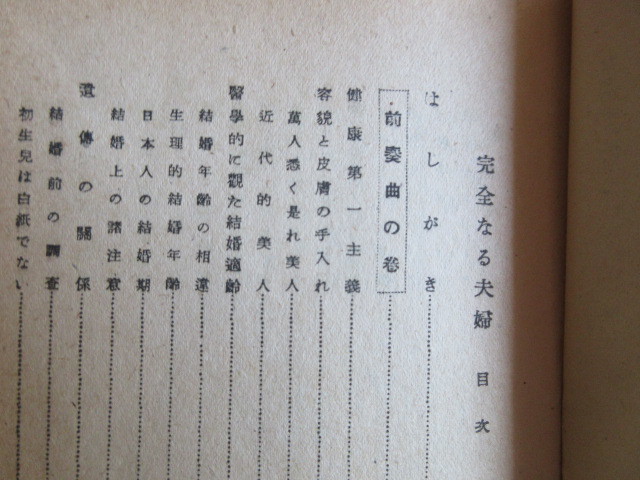 完全なる夫婦 目次
はしがき
前奏曲の卷
健康第一主義
容貌と皮膚の手入れ
萬人悉く是れ美人
近代的美人
醫學的に觀た結婚適齡
結婚年齡の相違
生理的結婚年齡
日本人の結婚期
結婚上の諸注意
遺傳の關係
結婚前の調査
初生兒は白紙でない